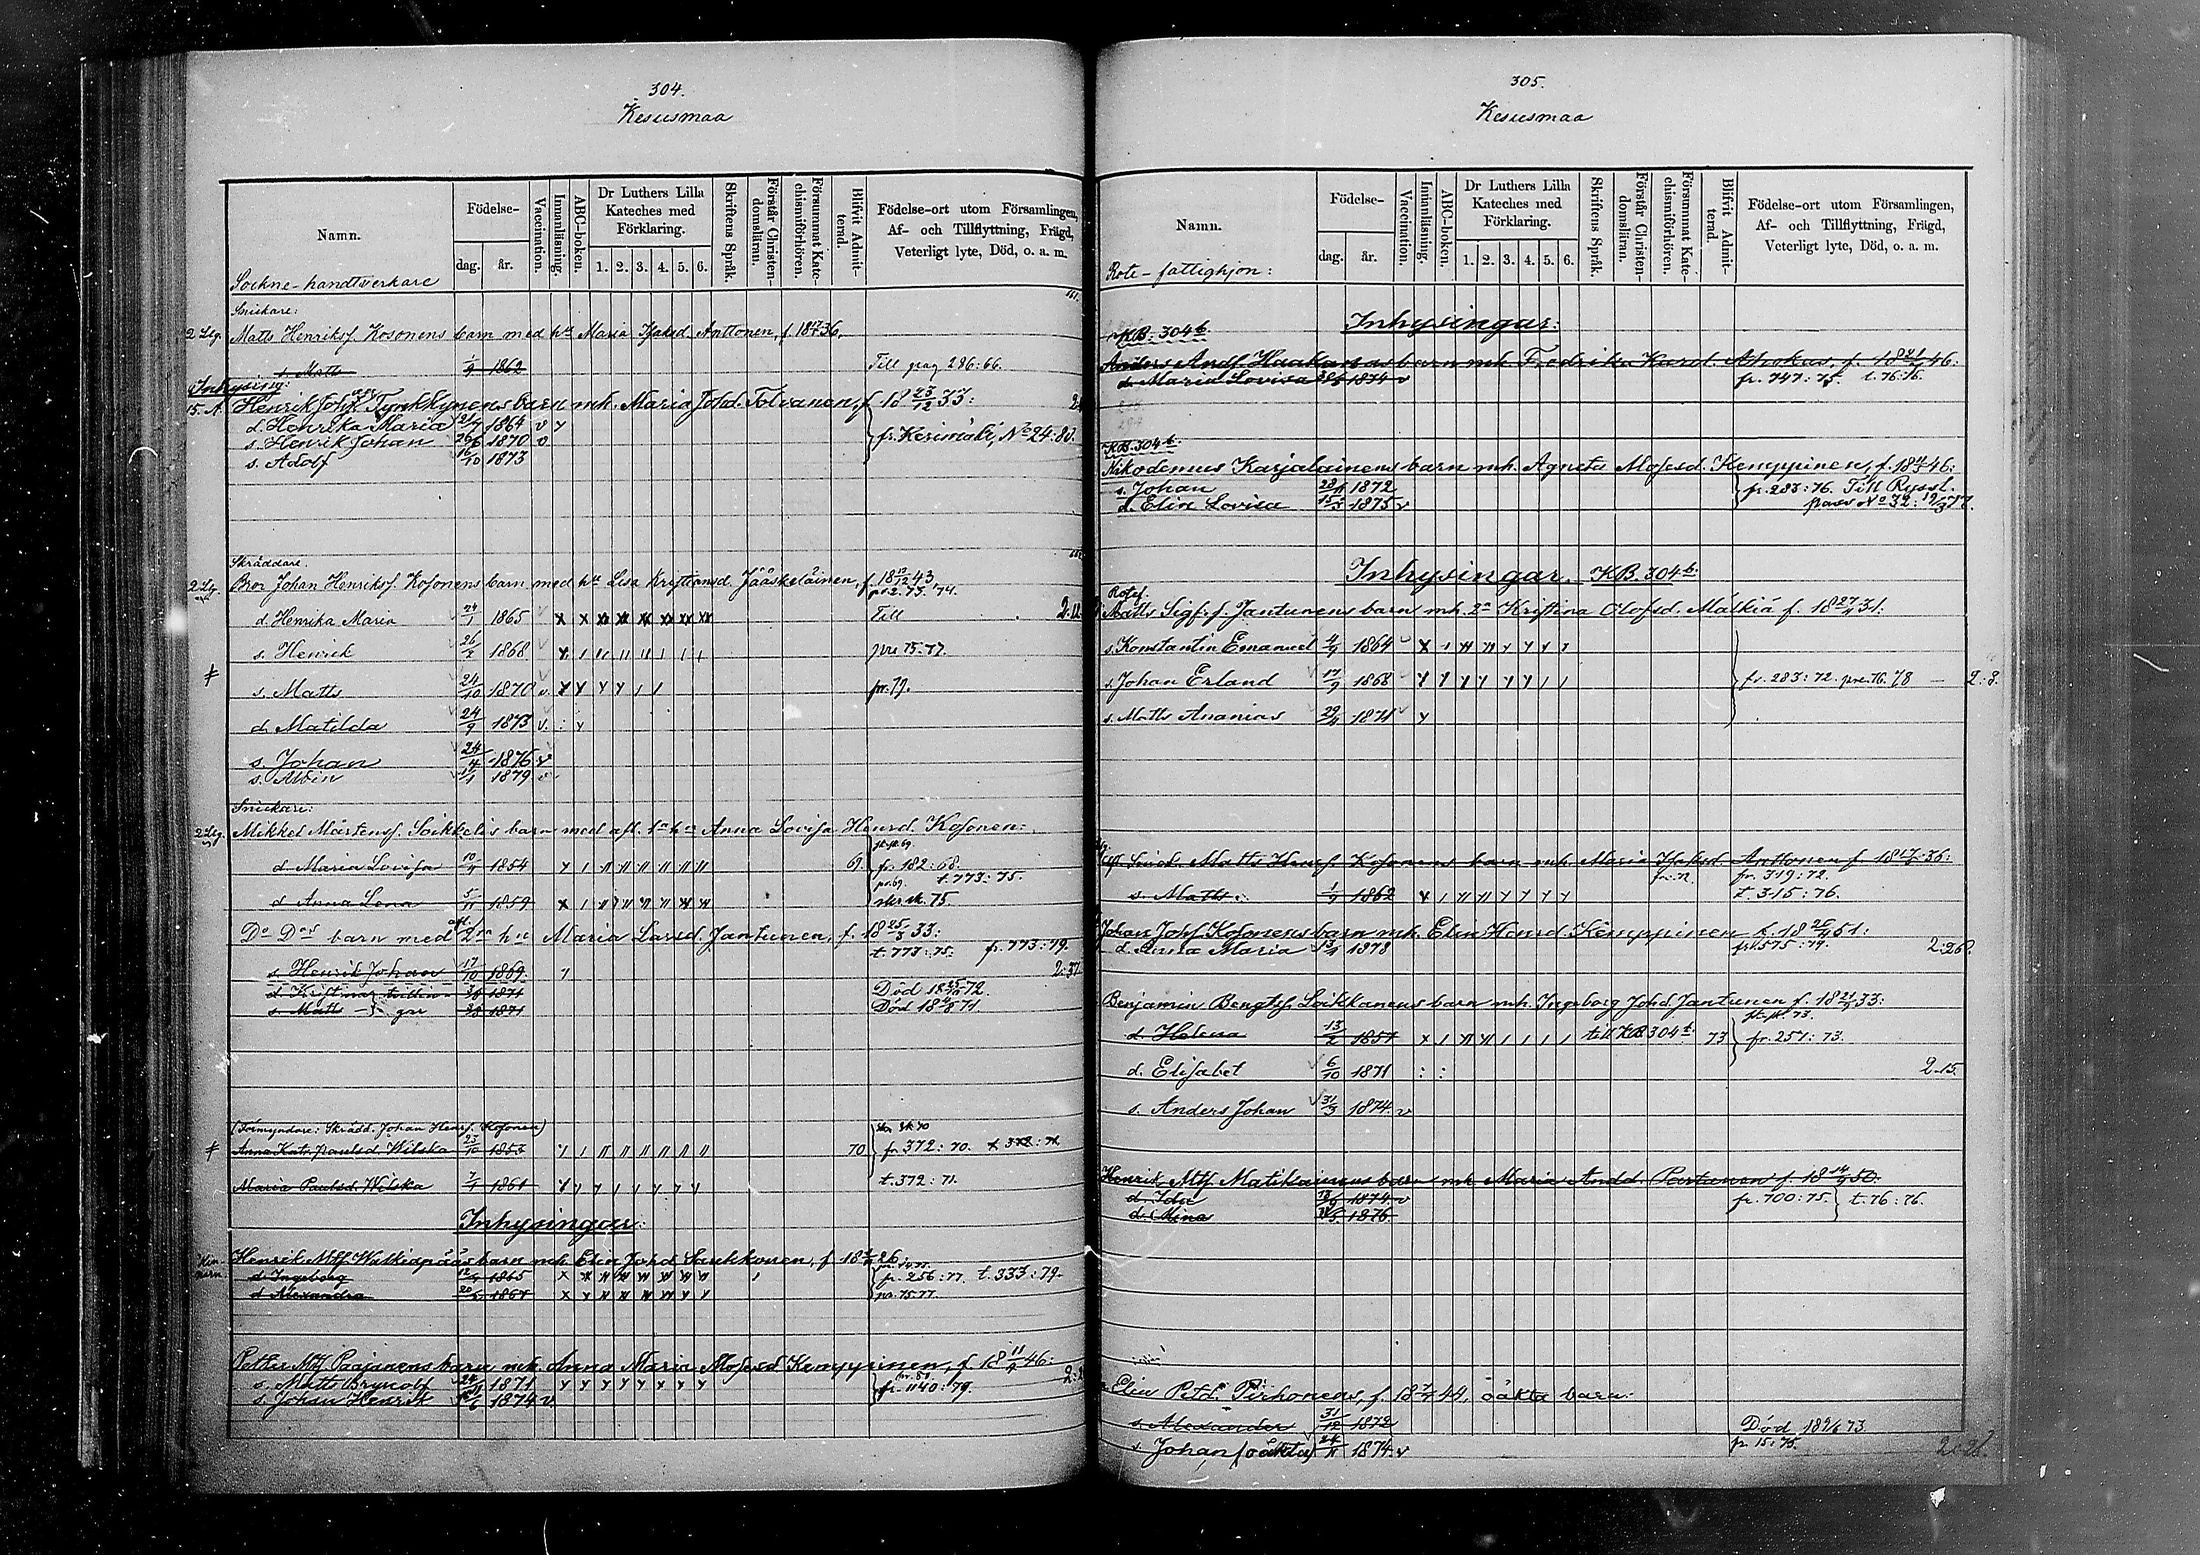 304.
Kesusmaa
Namn.
Födelse-
dag.
år.
Vaccination.
Innanläsning.
ABC-boken.
Dr Luthers Lilla Kateches med Förklaring.
1. 2. 3. 4. 5. 6.
Skriftens Språk.
Förstår Christendomsläran.
Försummat Katechismiförhören.
Blifvit Admitterad.
Födelse-ort utom Församlingen, Af- och Tillflyttning, Frägd, Veterligt lyte, Död, o. a. m.
Sockne-handtverkare
Snickare:
2 Lg. Matts Henriksf. Kosonens barn med h:u Maria Isaksd. Anttonen, f. 18 36.
s. Matts 1/9 1862 Till pag 286:66.
Inhysing:
15. A. Henrik Joh. Tynkkynens barn mh. Maria Johd. Tolvanen, f. 18 23/12 33:
d. Henrika Maria 1864 v
s. Henrik Johan 26/6 1870 v. fr. Kerimäki, No 24:80.
s. Adolf 16/10 1873
Skräddare.
2 Lg. Bror Johan Henriksf. Kosonens barn med h:u Lisa Kristiansd. Jääskeläinen, f. 18 43.
d. Henrika Maria 24/1 1865 Till
s. Henrik 26/2 1868 pre 75.77.
s. Matts 24/10 1870 v. pr. 79.
d. Matilda 24/9 1873 v.
s. Johan 24/4 1876 v
s. Albin 1/1 1879 v
Snickare:
2 Lg. Mikkel Mårtensf. Soikkelis barn med afl. 1:a h:u Anna Lovisa Henrd. Kosonen:
d. Maria Lovisa 10/4 1854 69. fr. 182:68. t. 773:75.
d. Anna Lena 5/11 1859 75
Do Dos barn med afl. 2:ra h:u Maria Larsd. Jantunen, f. 18 25/3 33:
t. 773:75. fr. 773:79.
s. Henrik Johan 17/10 1869. 2:37
d. Kristina tvillin- 1871 Död 18 72.
s. Matts gar 1871 Död 18 71.
(Förmyndare: Skrädd. Johan Henrf. Kosonen)
Anna Kat. Paulsd. Wilska 23/10 1853 70 fr. 372:70.
Maria Paulsd. Wilska 7/1 1861 t. 372:71.
Inhysingar:
Henrik Mtf. Walkiapääs barn mh. Elin Johd. Saukkonen, f. 18 26.
d. Ingeborg 1865 fr. 256:77. t. 333:79.
d. Alexandra 1867 pr. 75.77.
Petter Mtf. Paajanens barn mh. Anna Maria Mosesd. Kemppinen, f. 18 46:
s. Matts Brynolf 1871
s. Johan Henrik 1874 v. fr. 1140:79.
305.
Kesusmaa
Namn.
Födelse-
dag.
år.
Vaccination.
Innanläsning.
ABC-boken.
Dr Luthers Lilla Kateches med Förklaring.
1. 2. 3. 4. 5. 6.
Skriftens Språk.
Förstår Christendomsläran.
Försummat Katechismiförhören.
Blifvit Admitterad.
Födelse-ort utom Församlingen, Af- och Tillflyttning, Frägd, Veterligt lyte, Död, o. a. m.
Rote-fattighjon:
KB. 304b. Inhysingar:
Anders Andf. Haakanas barn mh. Fredrika Karsd. Ahokas, f. 18 46:
d. Maria Lovisa 1874 v fr. 747:75. t. 76:76.
KB. 304b:
Nikodemus Karjalainens barn mh. Agneta Mosesd. Kemppinen, f. 18 46:
s. Johan 1872 fr. 283:76. Till Ryssl.
d. Elin Lovisa 15/3 1875 v pass No 32: 19/3 77.
Inhysingar. KB. 304b:
Rotef.
Matts Sigf:f. Jantunens barn mh. 2:a Kristina Olofsd. Mälkiä f. 18 27/4 31:
s. Konstantin Emanuel 4/9 1864
s. Johan Erland 17/9 1868 fr. 283:72. pre. 76.78 — 2:8.
s. Matts Ananias 29/4 1871
Matts Henrf. Kosonens barn mh. Maria Isaksd. Anttonen f. 18 36:
fr. 319:72.
s. Matts: 1/9 1862 t. 315:76.
Johan Johf. Kosonens barn mh. Elin Henrd. Kemppinen f. 18 26/4 51:
d. Anna Maria 1878 fr. 575:79. 2:26.
Benjamin Bengtsf. Loikkanens barn mh. Ingeborg Johd. Jantunen f. 18 33:
d. Helena 13/2 1857 till KB 304b: 73 fr. 257:73.
d. Elisabet 6/10 1871 2.15.
s. Anders Johan 31/3 1874 v
Henrik Mtf. Matikainens barn mh. Maria Andd. Partanen f. 18 50.
d. Ida 1874 v fr. 700:75. t. 76:76.
d. Mina 1876.
Elin Petd. Pirhonens, f. 18 44, oäkta barn:
s. Alexander 31/12 1872 Död 18 73
s. Johan (oäkta) 24/11 1874 v fr. 15:75.